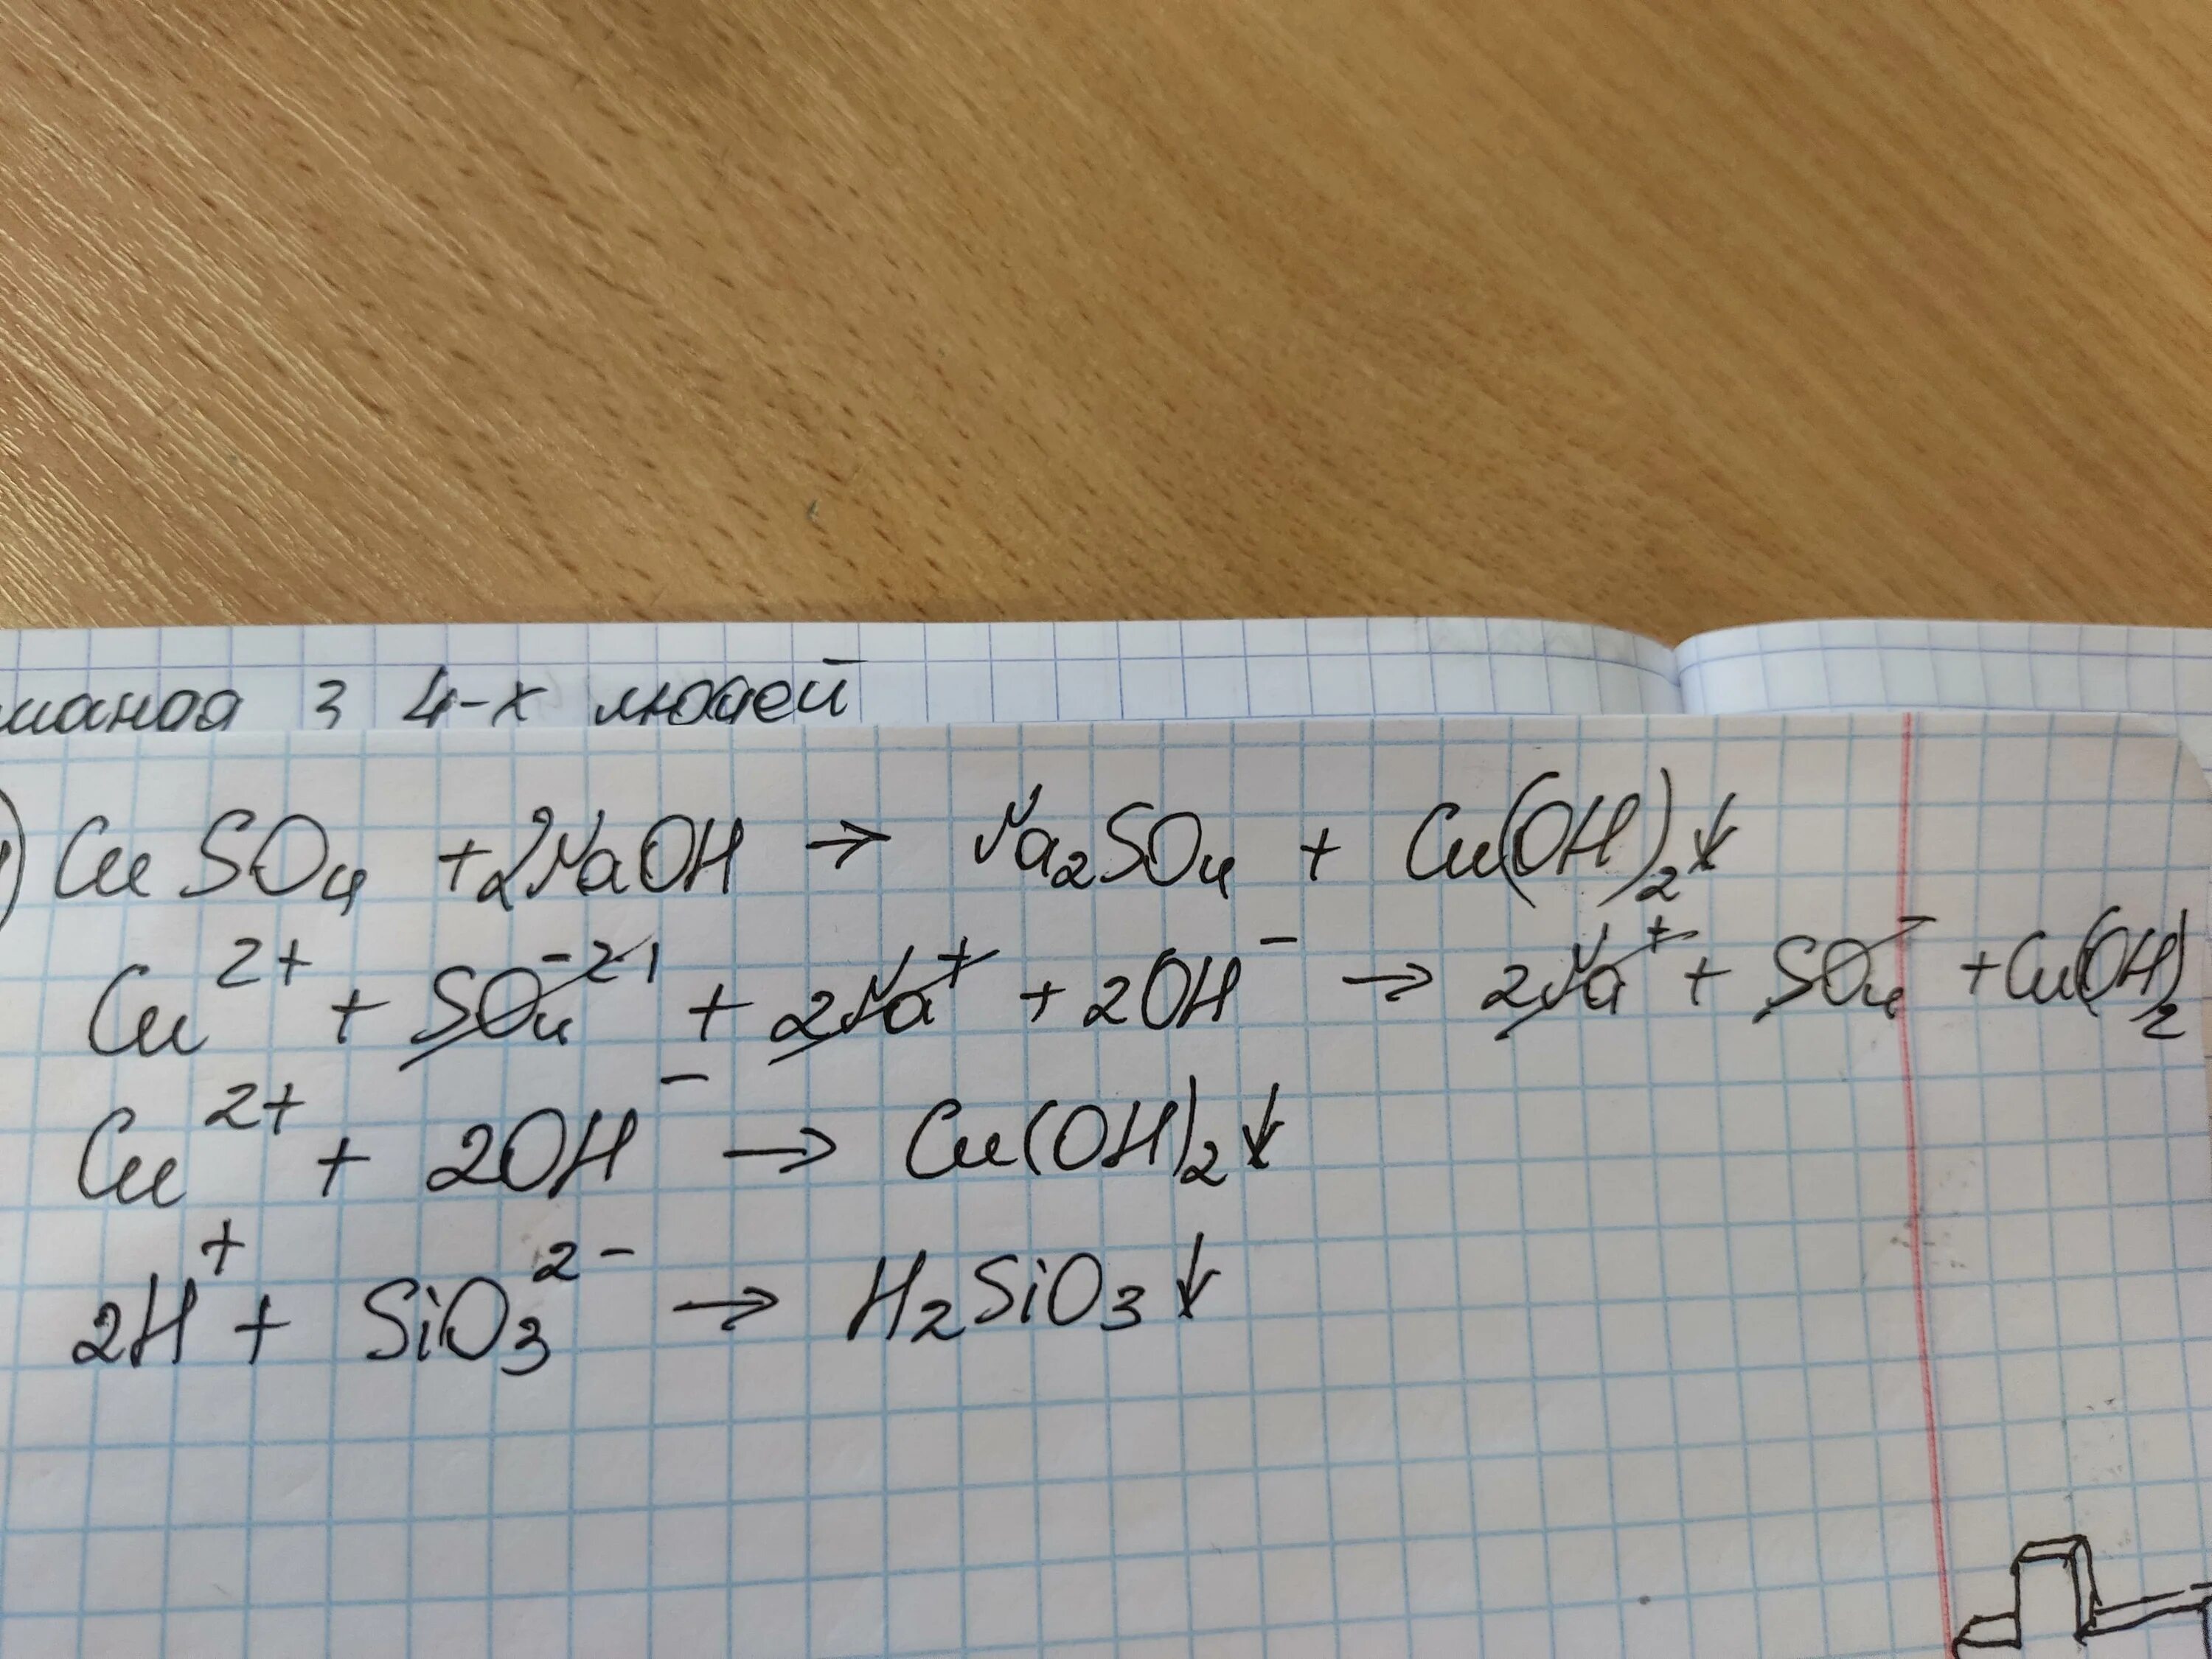 3 4-х людей
) CuSO₄ + 2NaOH → Na₂SO₄ + Cu(OH)₂↓
Cu²⁺ + SO₄⁻²¹ + 2Na⁺ + 2OH⁻ → 2Na⁺ + SO₄⁻ + Cu(OH)₂
Cu²⁺ + 2OH⁻ → Cu(OH)₂↓
2H⁺ + SiO₃²⁻ → H₂SiO₃↓